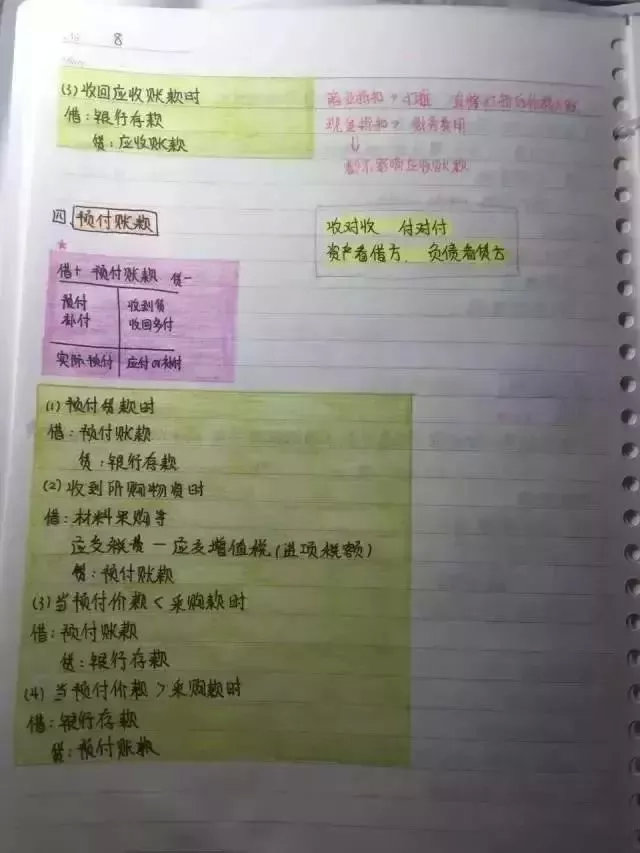 No. 8
(3)收回应收账款时
借：银行存款
贷：应收账款
商业折扣 > 打折 直接
现金折扣 > 财务费用
↓
影响应收账款
四、预付账款
收对收 付对付
资产看借方、负债看贷方
★
借+ 预付账款 贷-
预付 收到货
补付 收回多付
实际预付 应付or补付
(1)预付货款时
借：预付账款
贷：银行存款
(2)收到所购物资时
借：材料采购等
应交税费－应交增值税(进项税额)
贷：预付账款
(3)当预付价款<采购款时
借：预付账款
贷：银行存款
(4)当预付价款>采购款时
借：银行存款
贷：预付账款